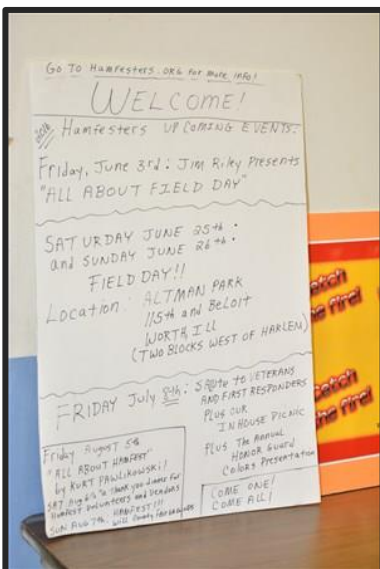 Go To Hamfesters.ORG for more info!
WELCOME!
2016
Hamfesters UPCOMING EVENTS:
Friday, June 3rd: Jim Riley Presents
"ALL ABOUT FIELD DAY"
SATURDAY JUNE 25th:
and SUNDAY JUNE 26th:
FIELD DAY!!
Location: ALTMAN PARK
115th and BELOIT
WORTH, ILL
(TWO BLOCKS WEST OF HARLEM)
FRIDAY July 8th: SALUTE to VETERANS
AND FIRST RESPONDERS
PLUS OUR
IN HOUSE PICNIC
PLUS The Annual
HONOR GUARD
COLORS Presentation
Friday August 5th
"ALL ABOUT HAMFEST"
by KURT PAWLIKOWSKI!
SAT Aug 6th Thank you dinner for
Hamfest Volunteers and Vendors
SUN AUG 7th, HAMFEST!!!
Will County Fairgrounds
COME ONE!
COME ALL!